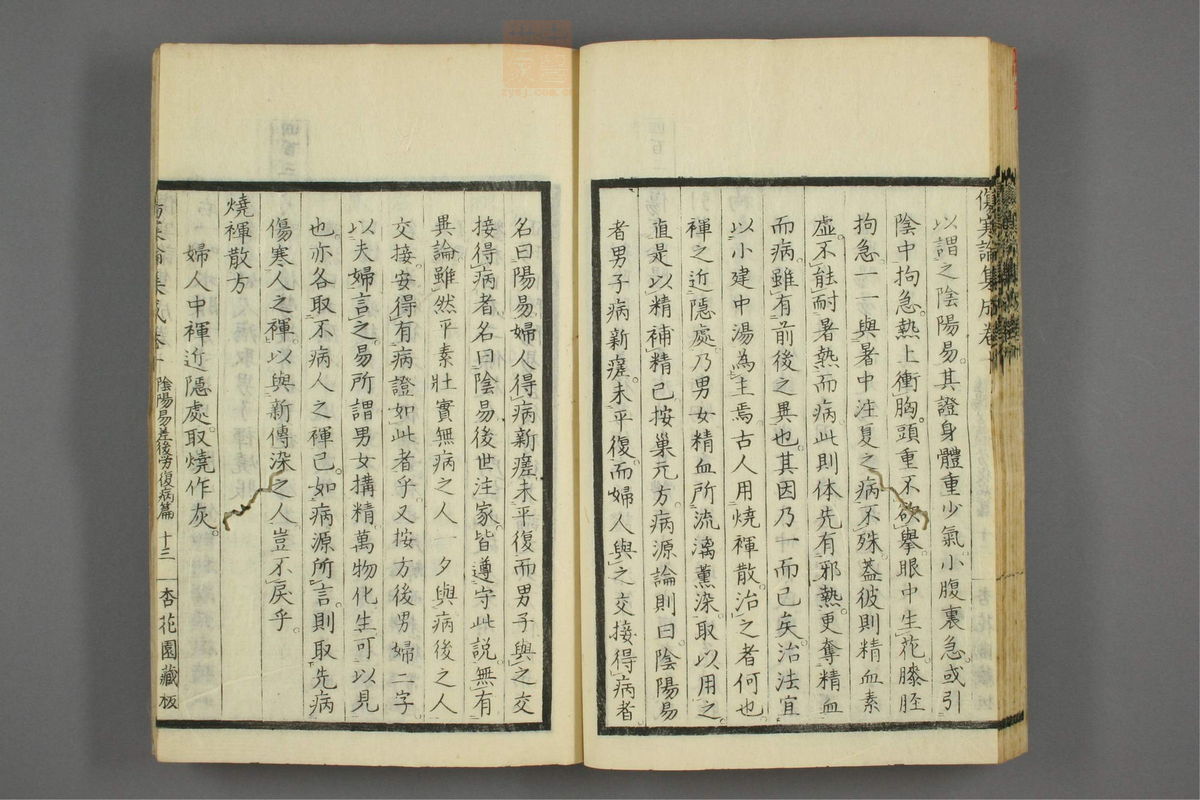 傷寒論集成卷
以謂之陰陽易。其證身體重少氣。小腹裏急。或引
陰中拘急。熱上衝胸。頭重不欲擧。眼中生花。膝脛
拘急。一一與暑中注夏之病不殊。蓋彼則精血素
虛。不能耐暑熱而病。此則体先有邪熱。更奪精血
而病。雖有前後之異也。其因乃一而已矣。治法宜
以小建中湯為主焉。古人用燒褌散。治之者何也
褌之近隱處。乃男女精血所流漓薰染。取以用之。
直是以精補精已。按巢元方病源論則曰。陰陽易
者男子病新瘥。未平復。而婦人與之交接得病者
名曰陽易。婦人得病新瘥未平復而男子與之交
接得病者。名曰陰易。後世注家。皆遵守此說。無有
異論。雖然平素壯實無病之人。一夕與病後之人
交接。安得有病證如此者乎。又按方後男婦二字
以夫婦言之。易所謂男女搆精萬物化生可以見
也。亦各取不病人之褌已。如病源所言。則取先病
傷寒人之褌。以與新傳染之人。豈不戾乎。
燒褌散方
婦人中褌近隱處。取燒作灰。
陰陽易差後労復病篇 十三 杏花園藏板
zysj.com.cn